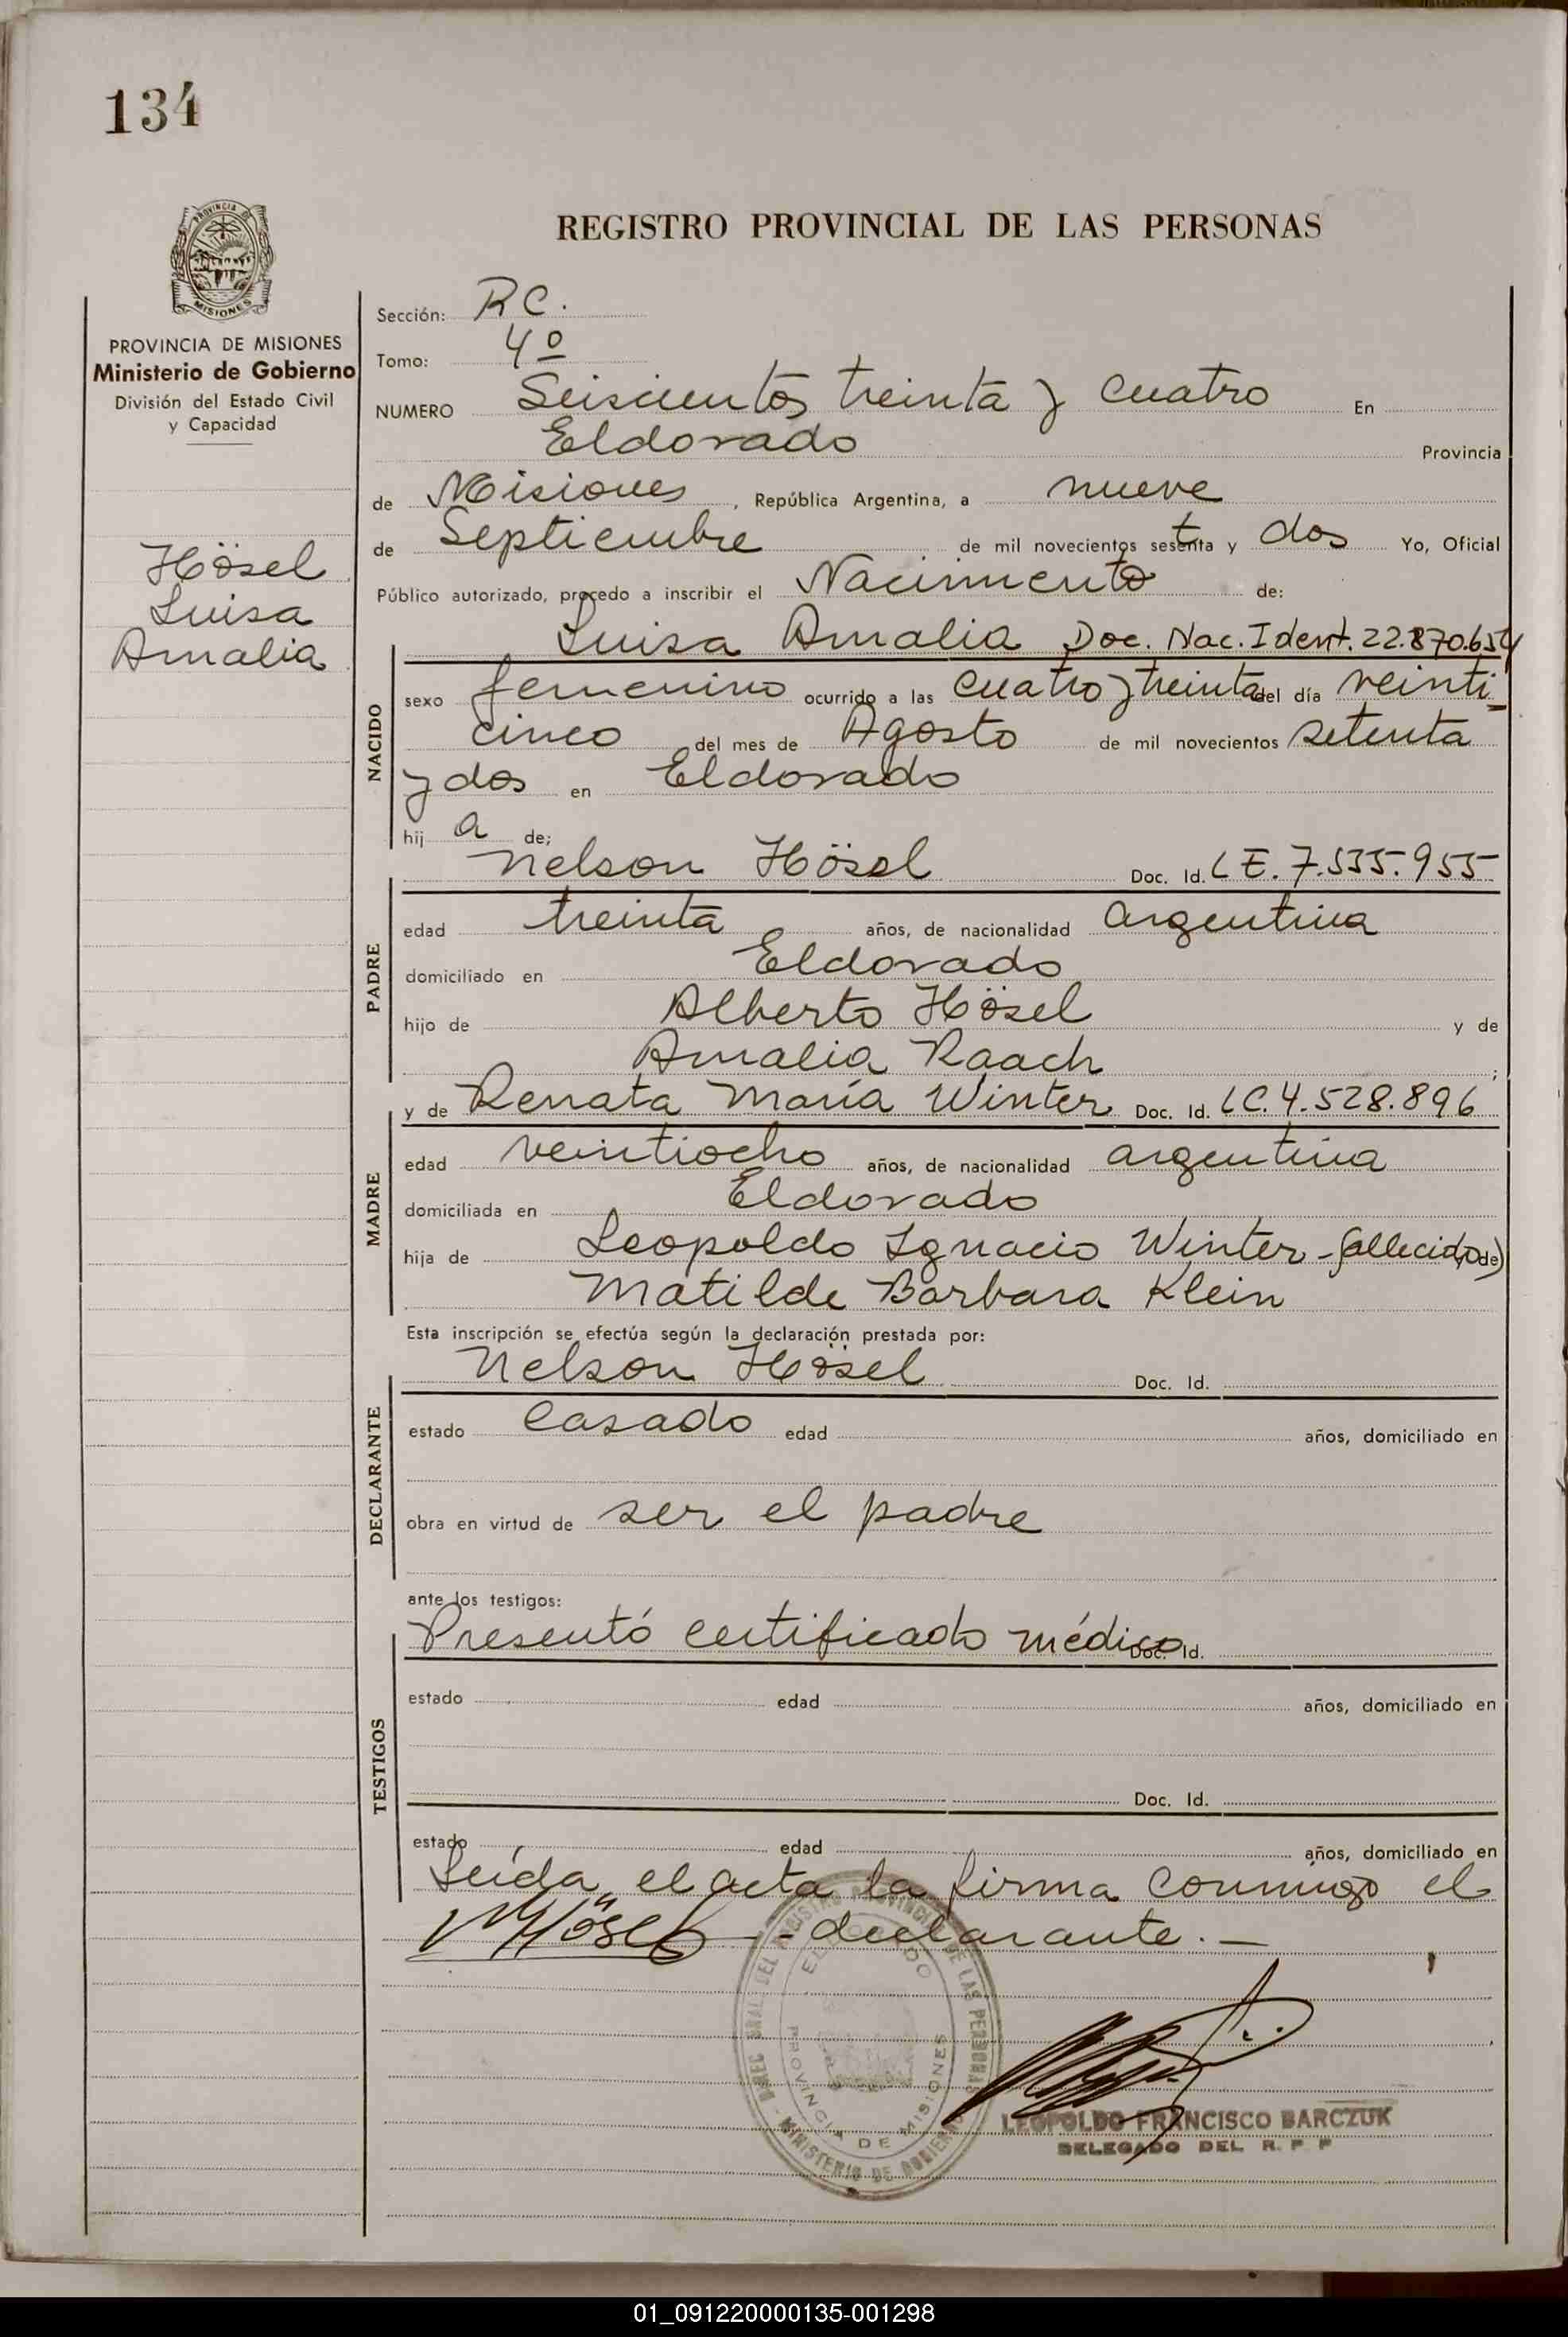 134
REGISTRO PROVINCIAL DE LAS PERSONAS
PROVINCIA DE
MISIONES
PROVINCIA DE MISIONES
Ministerio de Gobierno
División del Estado Civil
y Capacidad
Hösel
Luisa
Amalia
Sección: RC.
Tomo: 4º
NUMERO Seiscientos treinta y cuatro En
Eldorado Provincia
de Misiones, República Argentina, a nueve
de Septiembre de mil novecientos setenta y dos Yo, Oficial
Público autorizado, procedo a inscribir el Nacimiento de:
Luisa Amalia Doc. Nac. Ident. 22.870.654
NACIDO
sexo femenino ocurrido a las cuatro y treinta del día veinti-
cinco del mes de Agosto de mil novecientos setenta
y dos en Eldorado
hij a de;
Nelson Hösel Doc. Id. LE. 7.535.955
PADRE
edad treinta años, de nacionalidad argentina
domiciliado en Eldorado
hijo de Alberto Hösel y de
Amalia Raach ;
y de Renata María Winter Doc. Id. LC. 4.528.896
MADRE
edad veintiocho años, de nacionalidad argentina
domiciliada en Eldorado
hija de Leopoldo Ignacio Winter -fallecido) y de
Matilde Barbara Klein
Esta inscripción se efectúa según la declaración prestada por:
Nelson Hösel Doc. Id.
DECLARANTE
estado Casado edad años, domiciliado en
obra en virtud de ser el padre
ante los testigos:
Presentó certificado médico Doc. Id.
TESTIGOS
estado edad años, domiciliado en
Doc. Id.
estado edad años, domiciliado en
Leída el acta la firma conmigo el
NHösel - declarante. —
REGISTRO PROVINCIAL DE LAS PERSONAS
ELDORADO
PROVINCIA DE MISIONES
MINISTERIO DE GOBIERNO
LEOPOLDO FRANCISCO BARCZUK
DELEGADO DEL R. P. P
01_091220000135-001298